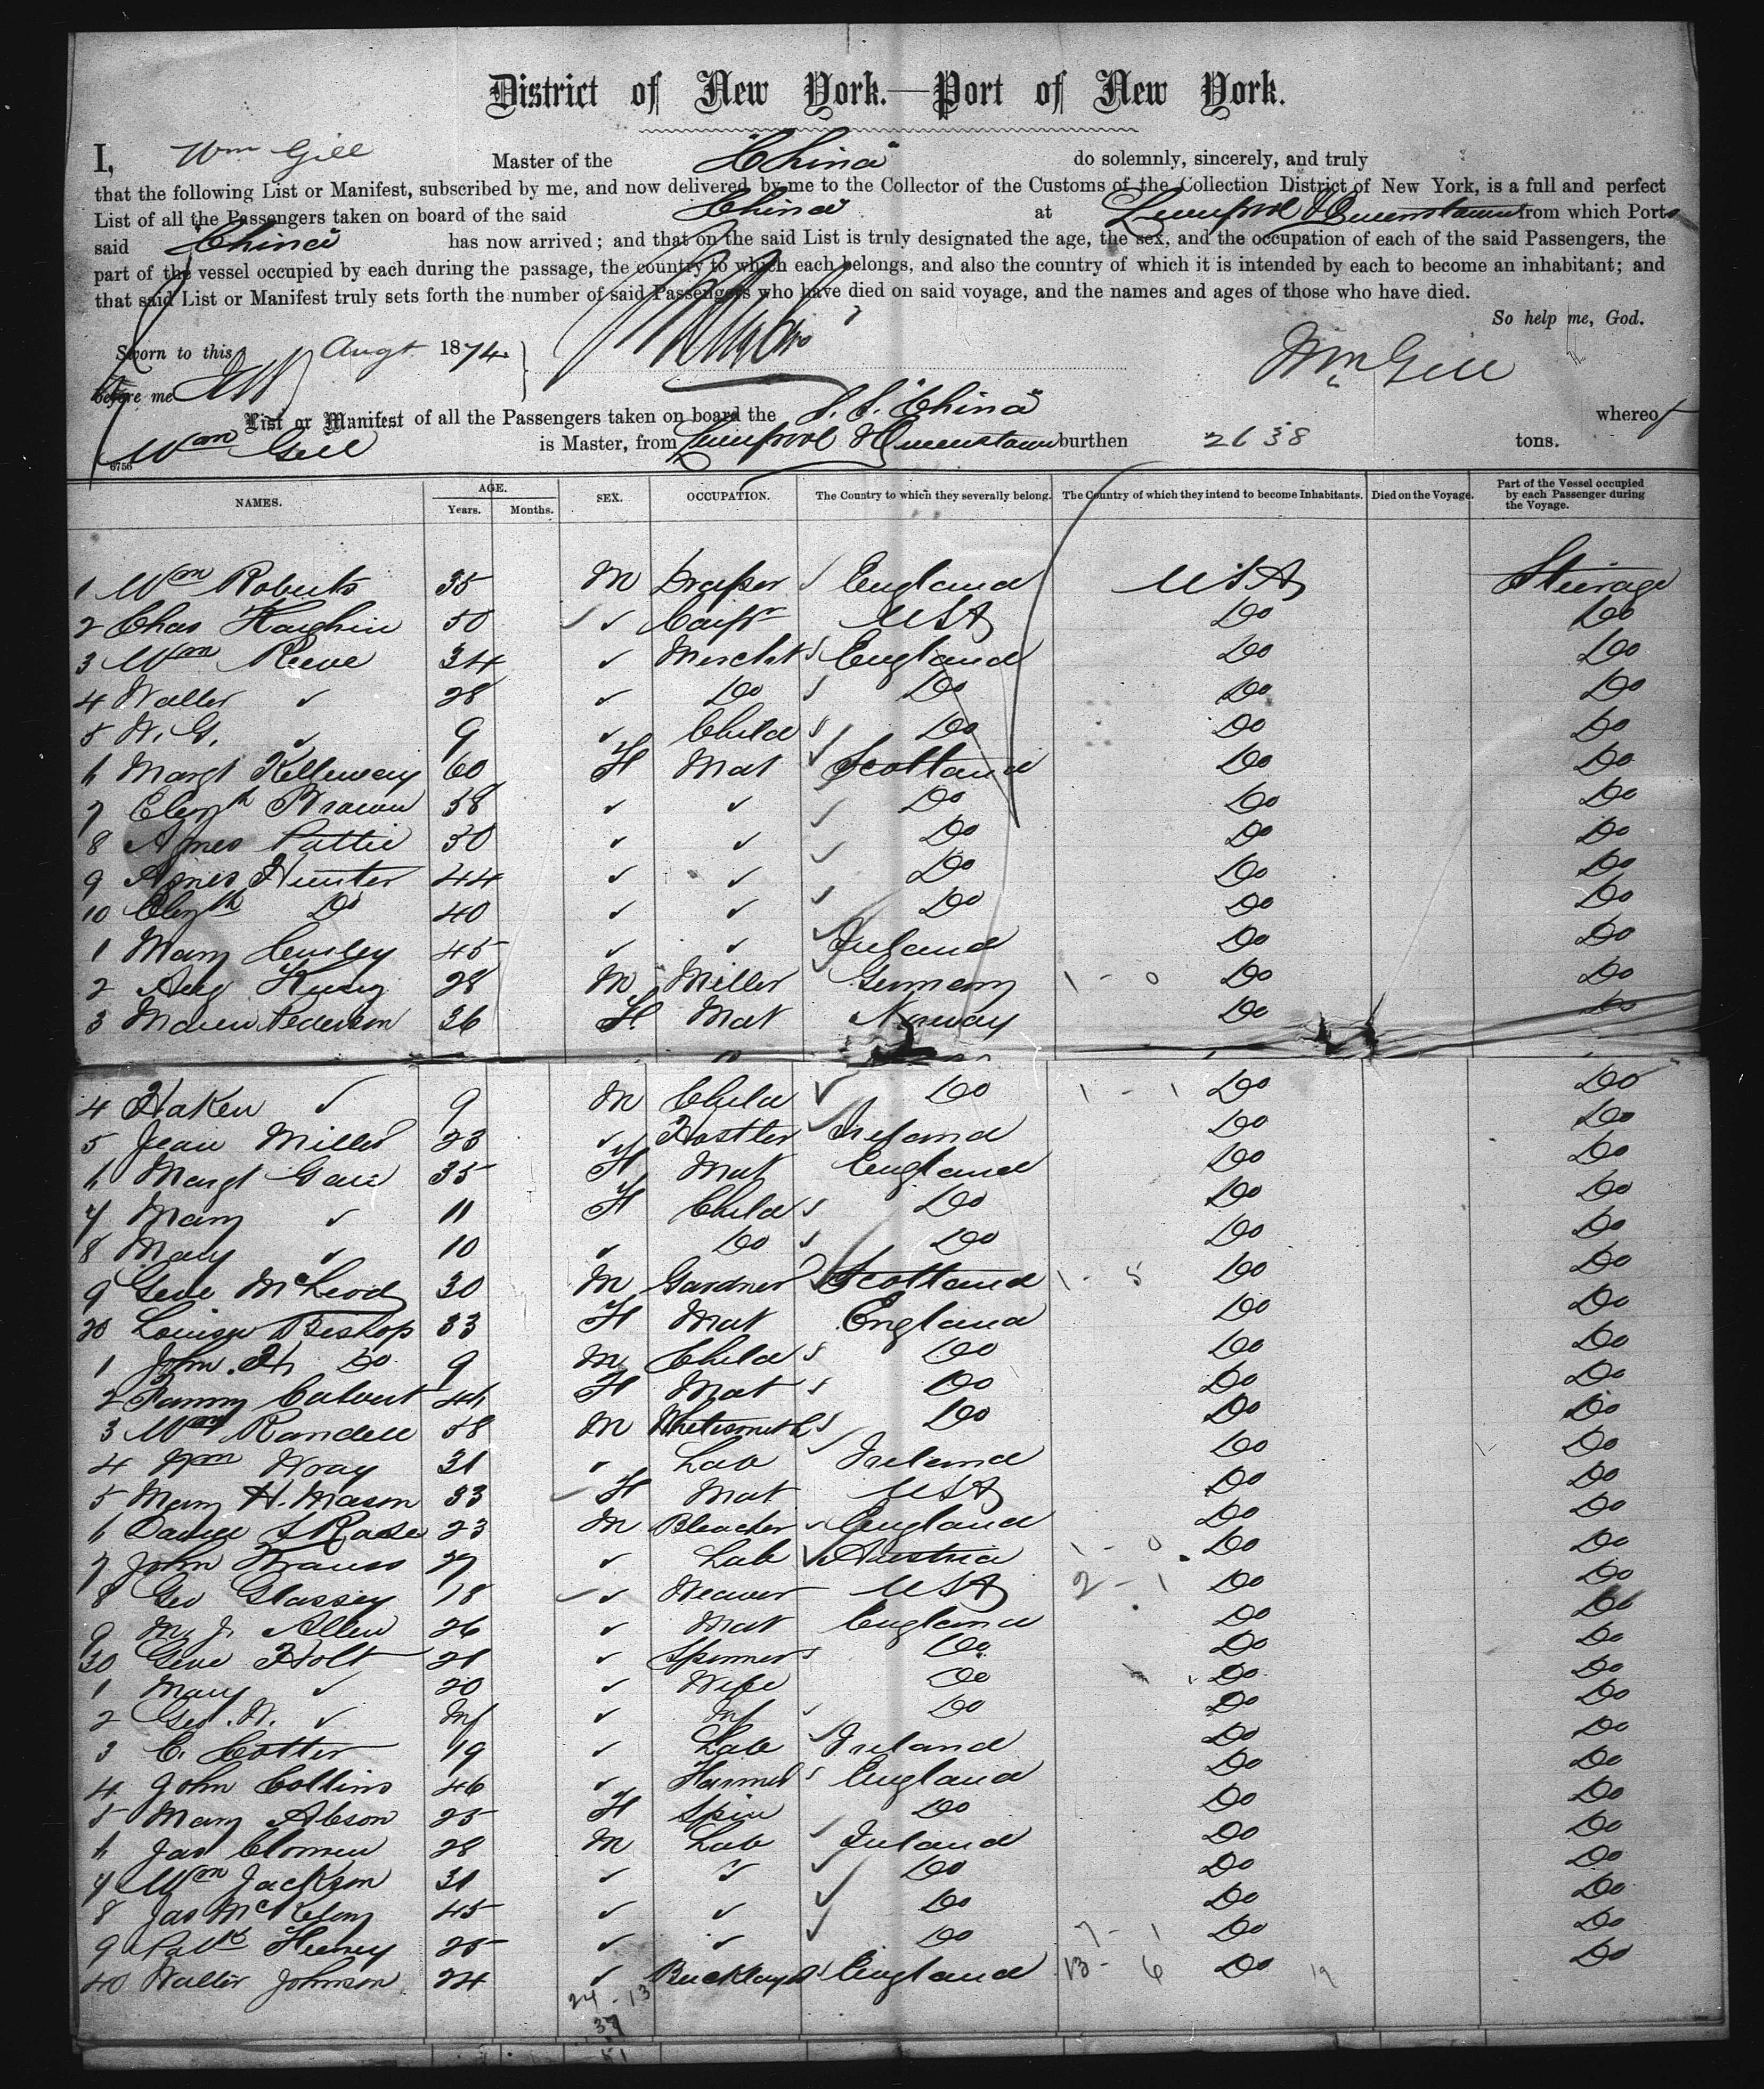 District of New York.—Port of New York.
I, Wm Gill Master of the "China" do solemnly, sincerely, and truly
that the following List or Manifest, subscribed by me, and now delivered by me to the Collector of the Customs of the Collection District of New York, is a full and perfect
List of all the Passengers taken on board of the said China at Liverpool & Queenstown from which Ports
said "China" has now arrived; and that on the said List is truly designated the age, the sex, and the occupation of each of the said Passengers, the
part of the vessel occupied by each during the passage, the country to which each belongs, and also the country of which it is intended by each to become an inhabitant; and
that said List or Manifest truly sets forth the number of said Passengers who have died on said voyage, and the names and ages of those who have died.
So help me, God.
Sworn to this Augt 1874
Wm Gill
before me
List or Manifest of all the Passengers taken on board the S.S. "China" whereof
Wm Gill is Master, from Liverpool & Queenstown burthen 2638 tons.
6756
NAMES. AGE. Years. Months. SEX. OCCUPATION. The Country to which they severally belong. The Country of which they intend to become Inhabitants. Died on the Voyage. Part of the Vessel occupied by each Passenger during the Voyage.
1 Wm Roberts 35 M Draper England USA Steerage
2 Chas 50 ✓ USA Do Do
3 Wm Reeve 34 ✓ Mercht England Do Do
4 Walter ✓ 28 ✓ Do Do Do Do
5 W. G. ✓ 9 ✓ Child Do Do Do
6 Margt Kelleway 60 F Mat Scotland Do Do
7 Elizth Brown 38 ✓ ✓ Do Do Do
8 Agnes Pattie 30 ✓ ✓ Do Do Do
9 Agnes Hunter 44 ✓ ✓ Do Do Do
10 Elizth Do 40 ✓ ✓ Do Do Do
1 Mary 45 ✓ ✓ Ireland Do Do
2 Aug 28 M Miller Germany 1 - 0 Do Do
3 Maren Pederson 36 F Mat Norway Do Do
4 Haken ✓ 9 M Child Do 1 - 1 Do Do
5 Jean Miller 23 ✓ Hostler Ireland Do Do
6 Margt 35 F Mat England Do Do
7 Mary ✓ 11 F Child Do Do Do
8 Mary ✓ 10 ✓ Do Do Do Do
9 Geoe McLeod 30 M Gardner Scotland 1 - 5 Do Do
20 Louisa Bishop 33 F Mat England Do Do
1 John. H. Do 9 M Child Do Do Do
2 Fanny Calvert F Mat Do Do Do
3 Wm Randell 58 M Whitesmith Do Do Do
4 Wm Wray 31 ✓ Lab Ireland Do Do
5 Mary H. Mason 33 F Mat USA Do Do
6 23 M Bleacher England Do Do
7 John 29 ✓ Lab Austria 1 - 0 Do Do
8 Geo Glassey 18 ✓ Weaver USA 2 - 1 Do Do
9 M. J. Allen 26 ✓ Mat England Do Do
30 Geoe Holt 21 ✓ Spinner Do Do Do
1 Mary ✓ 20 ✓ Wife Do Do Do
2 Geo. W. ✓ Inf ✓ Inf Do Do Do
3 C. Cotter 19 ✓ Lab Ireland Do Do
4 John Collins 46 ✓ Farmer England Do Do
5 Mary Abson 25 F Spin Do Do Do
6 Jas 28 M Lab Ireland Do Do
7 Wm Jackson 31 ✓ ✓ Do Do Do
8 Jas 45 ✓ ✓ Do Do Do
9 Patk Heeney 25 ✓ ✓ Do 7 - 1 Do Do
40 Walter Johnson 24 ✓ England 13 - 6 Do 19 Do
24 - 13
37